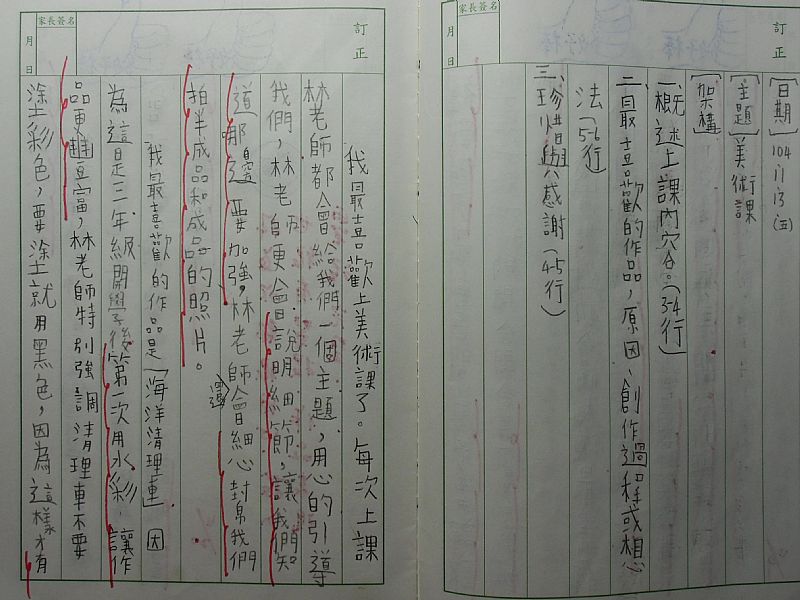 家長簽名
訂正
月
日
[日期] 104 11.13(五)
[主題] 美術課
[架構]
一、概述上課內容。(3-4行)
二、最喜歡的作品,原因、創作過程或想
法(5-6行
三、珍惜與感謝(4-5行)
家長簽名
訂正
月
日
我最喜歡上美術課了。每次上課
林老師都會給我們一個主題,用心的引導
我們,林老師更會說明細節,讓我們知
道哪邊要加強,林老師會細心
邊
我們
拍半成品和成品的照片。
我最喜歡的作品是「海洋清理車」因
為這是三年級開學後第一次用水彩,讓作
品更豐富,林老師特別強調清理車不要
塗彩色,要塗就用黑色,因為這樣才有